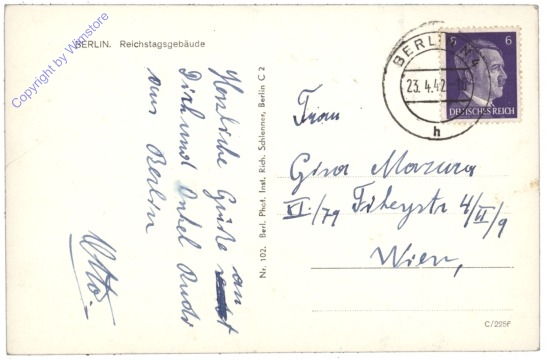 BERLIN. Reichstagsgebäude
Copyright by Winstore
Herzliche Grüße an
Dich und Onkel Rudi
aus Berlin
Otto.
Nr. 102. Berl. Phot. Inst. Rich. Schlenner, Berlin C 2
BERLIN
23.4.42
h
6 6
DEUTSCHES REICH
Frau
Gina Mazura
VI./79 Fikeystr 4/II/9
Wien,
C/2256